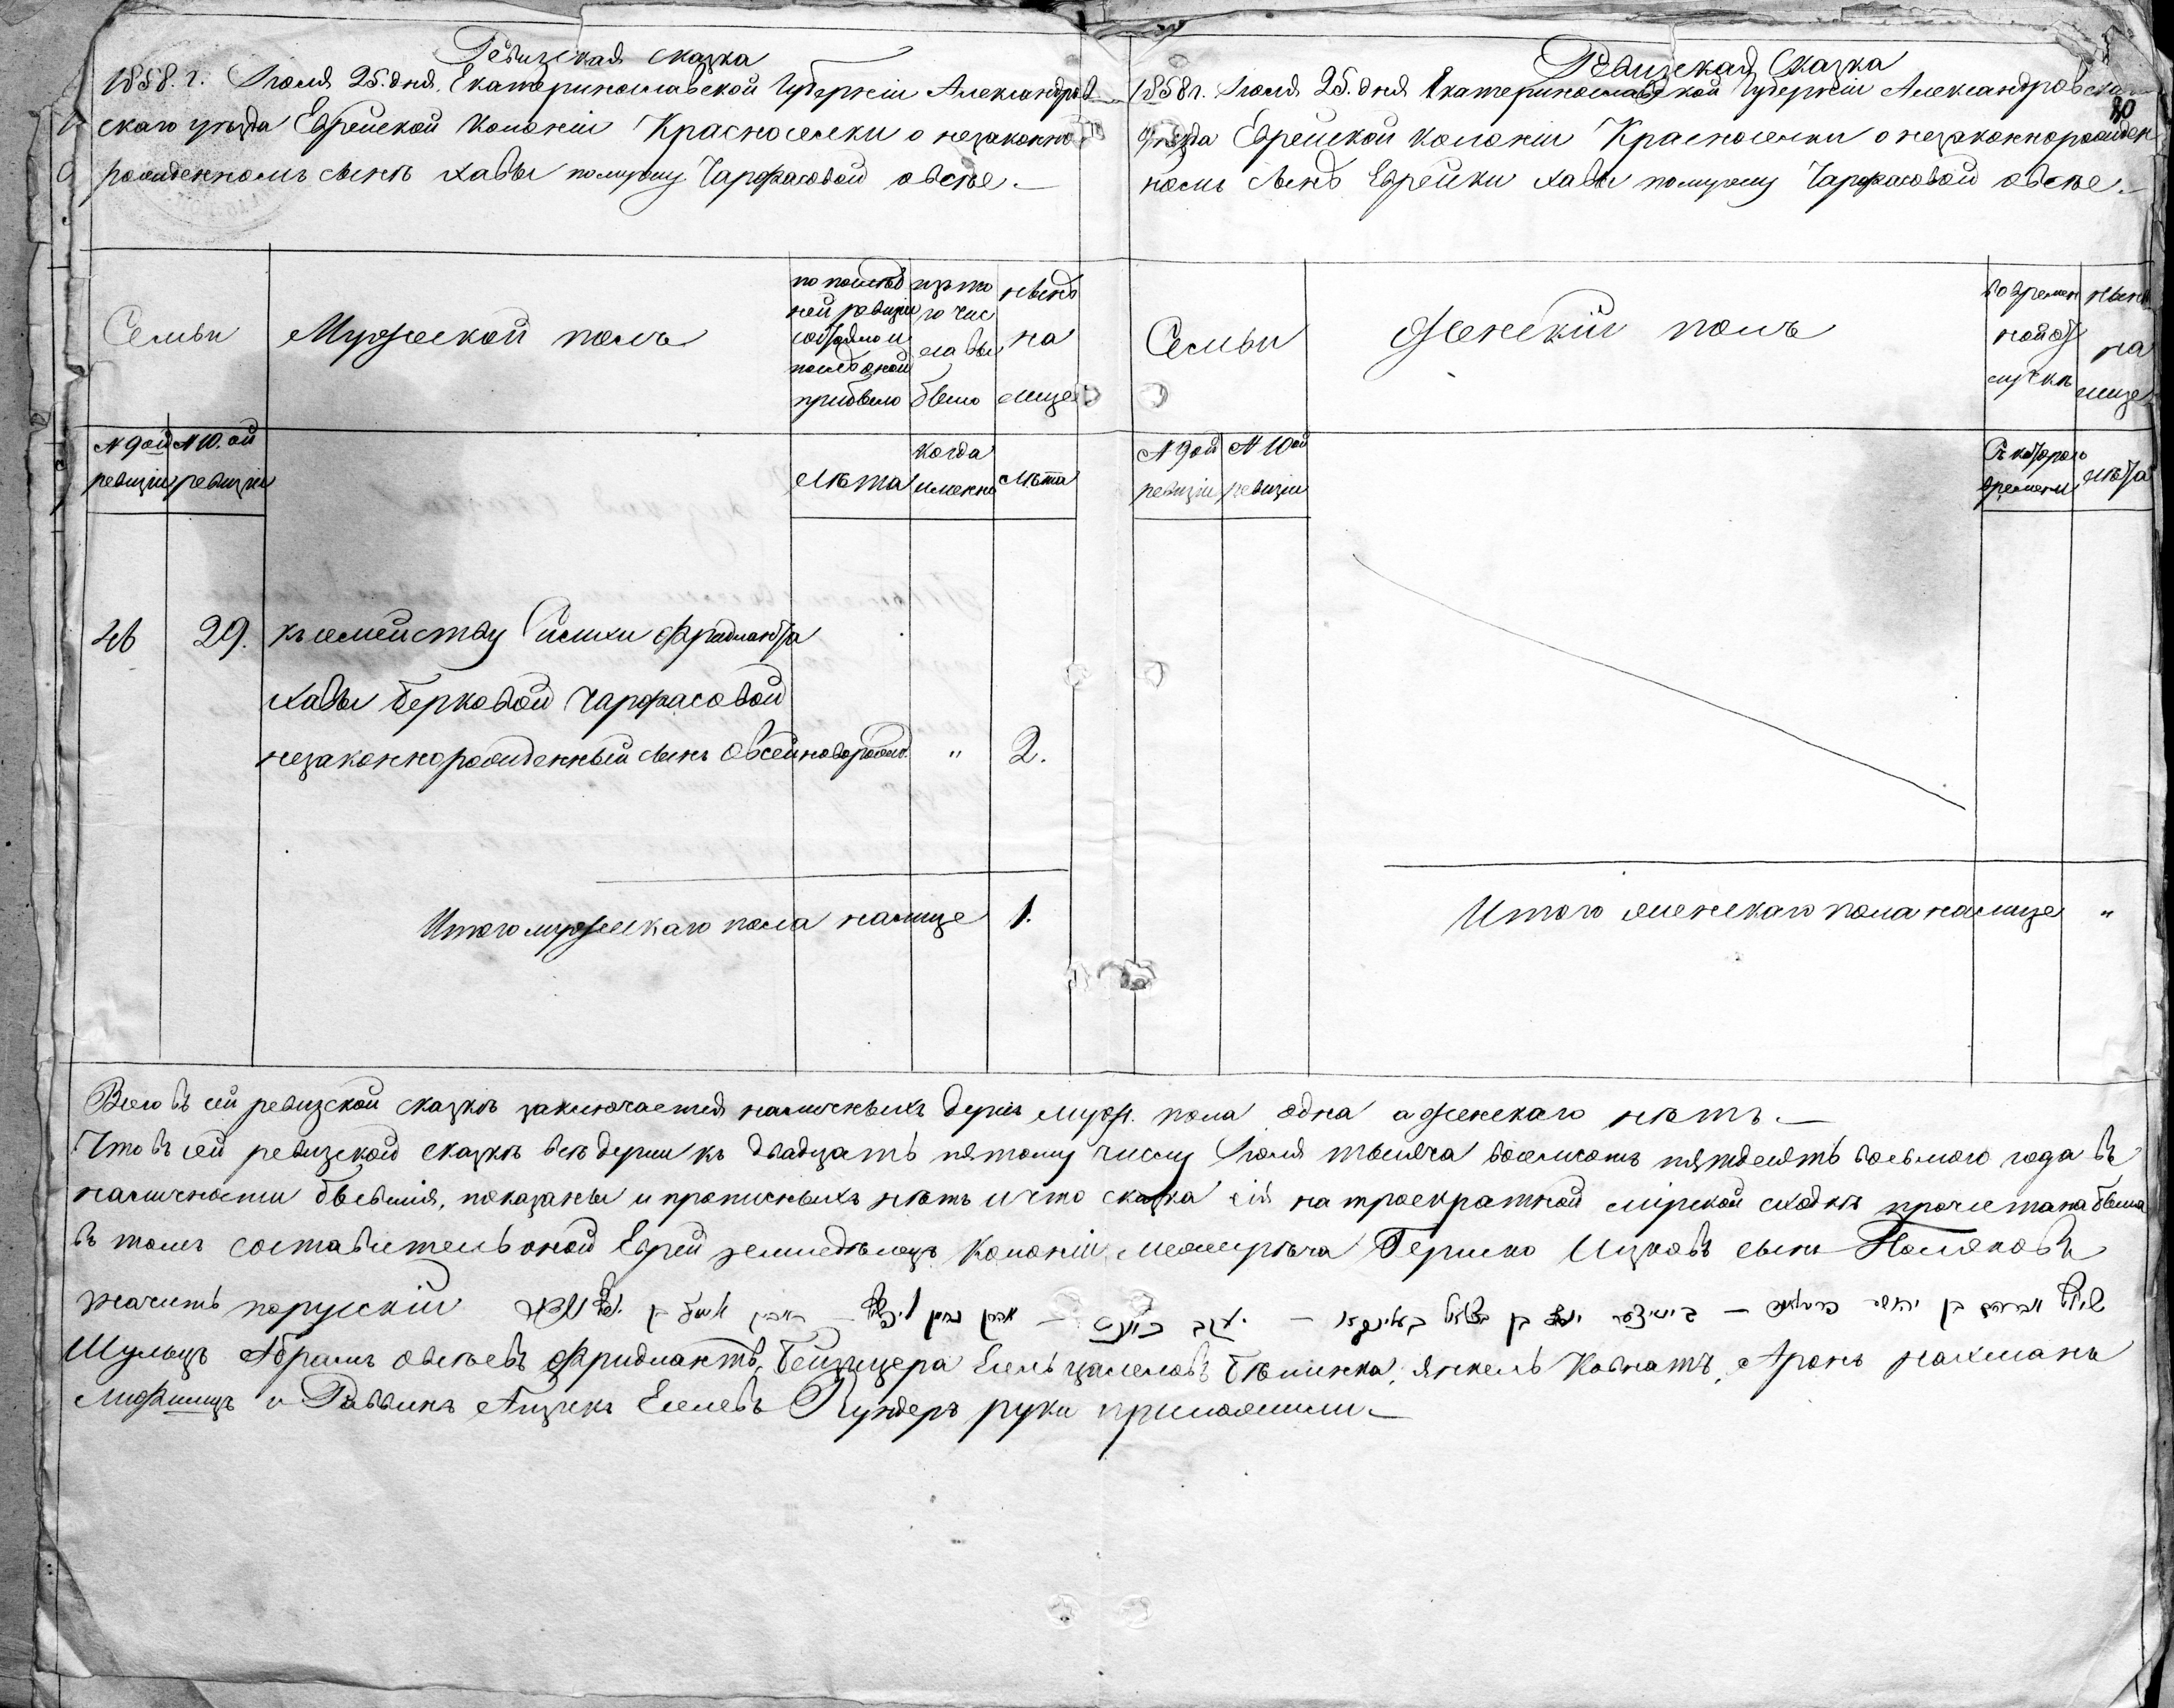 Ревизская сказка
1858. г. Июля 25. дня, Екатеринославской Губерніи Александров
скаго уезда Еврейской колоніи Красноселки о незаконно
рожденномъ сынѣ Хавы по мужу Чарфасовой Овсѣе.—
Семьи
Мужеской полъ
по послѣд
ней ревизіи
состояло и
послѣ оной
прибыло
изъ то
го чис
ла вы
было
нынѣ
на
лице
№ 9ой
ревизіи
№ 10. ой
ревизіи
Лѣта
когда
именно
Лѣта
46 29. къ семейству Фридманта
Хавы Берковой Чарфасовой
незаконнорожденный сынъ Овсей новорожд. " 2.
Итого мужескаго пола на лице 1.
Ревизская Сказка
1858 г. Июля 25. дня Екатеринославской Губерніи Александровска
20
уезда Еврейской колоніи Красноселки о незаконнорожден
номъ сынѣ Еврейки Хавы по мужу Чарфасовой Овсѣе.—
Семьи
Женскій полъ
во времен
ной от
лучкѣ
нынѣ
на
лице
№ 9ой
ревизіи
№ 10ой
ревизіи
Съ котораго
времени
лѣта
Итого женскаго пола на лице "
Всего въ сей ревизской сказкѣ заключается наличныхъ душъ муж. пола одна а женскаго нѣтъ.—
Что въ сей ревизской сказкѣ всѣ души къ двадцать пятому числу Июля тысяча восемсотъ пятдесятъ восьмого года въ
наличности бывшія, показаны и прописныхъ нѣтъ и что сказка сія на троекратной мірской сходкѣ прочитана была
въ томъ составитель оной Еврей земледѣлецъ Колоніи Межирѣча Гершко Ицковъ сынъ Поляковъ
значитъ порусскіи
Шульцъ Абрамъ Овсѣевъ Фридмантъ, Бейзицера Бѣлинка, Янкель Ковнатъ, Аронъ Нахмана
Лифшицъ и Раввинъ Айзикъ руки приложили.—